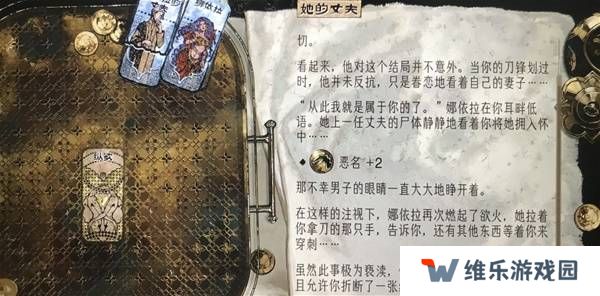 她的丈夫
娜依拉
纵欲
切。
看起来，他对这个结局并不意外。当你的刀锋划过
时，他并未反抗，只是眷恋地看着自己的妻子……
“从此我就是属于你的了。”娜依拉在你耳畔低
语。她上一任丈夫的尸体静静地看着你将她拥入怀
中……
恶名 +2
那不幸男子的眼睛一直大大地睁开着。
在这样的注视下，娜依拉再次燃起了欲火，她拉着
你拿刀的那只手，告诉你，还有其他东西等着你来
穿刺……
虽然此事极为亵渎，
且允许你折断了一张
维乐游戏园